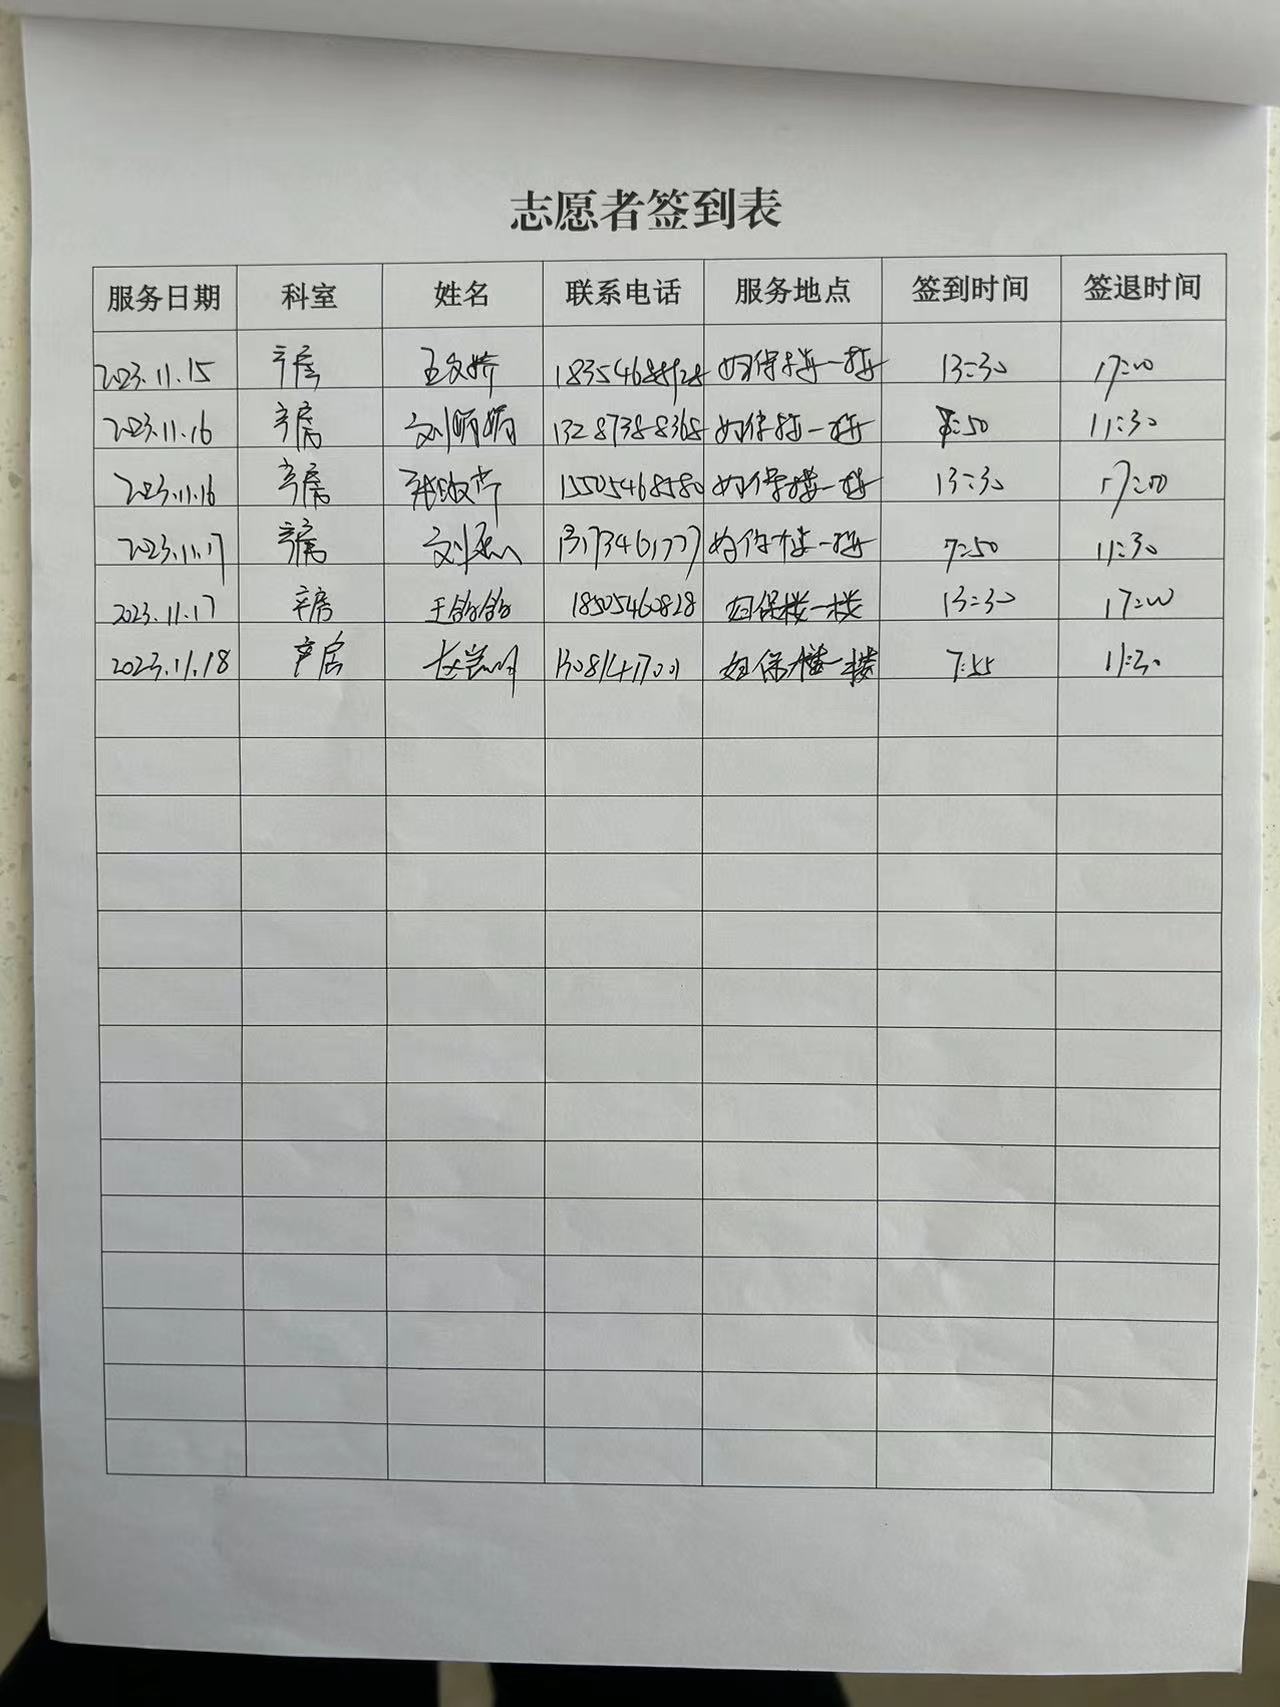 志愿者签到表
服务日期 科室 姓名 联系电话 服务地点 签到时间 签退时间
2023.11.15 产房 王文娇 妇保楼一楼 13:30 17:00
2023.11.16 产房 刘娟娟 13287388368 妇保楼一楼 7:50 11:30
2023.11.16 产房 15505468580 妇保楼一楼 13:30 17:00
2023.11.17 产房 13173461777 妇保楼一楼 7:50 11:30
2023.11.17 产房 王铃铃 18505460828 妇保楼一楼 13:30 17:00
2023.11.18 产房 妇保楼一楼 7:55 11:30